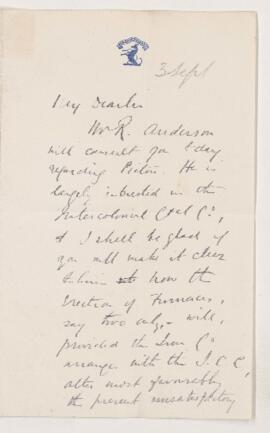 3 Sept
My Dear
Mr R. Anderson
will consult you today
regarding Pictou. He is
largely interested in the
Intercolonial Coal Co.,
& I shall be glad if
you will make it clear
to him how the
Erection of Furnaces,
say two only, – will,
provided the Iron Co
arranges with the I.C.C,
alter most favourably
the present unsatisfactory